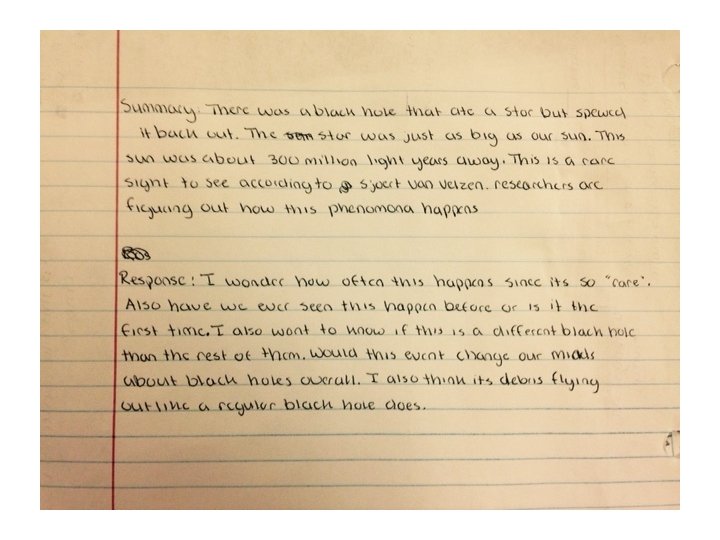 Summary: There was a black hole that ate a star but spewed
it back out. The star was just as big as our sun. This
sun was about 300 million light years away. This is a rare
sight to see according to Sjoert van velzen. researchers are
figuring out how this phenomona happens
Response: I wonder how often this happens since its so "rare".
Also have we ever seen this happen before or is it the
first time. I also want to know if this is a different black hole
than the rest of them. Would this event change our minds
about black holes overall. I also think its debris flying
out like a regular black hole does.